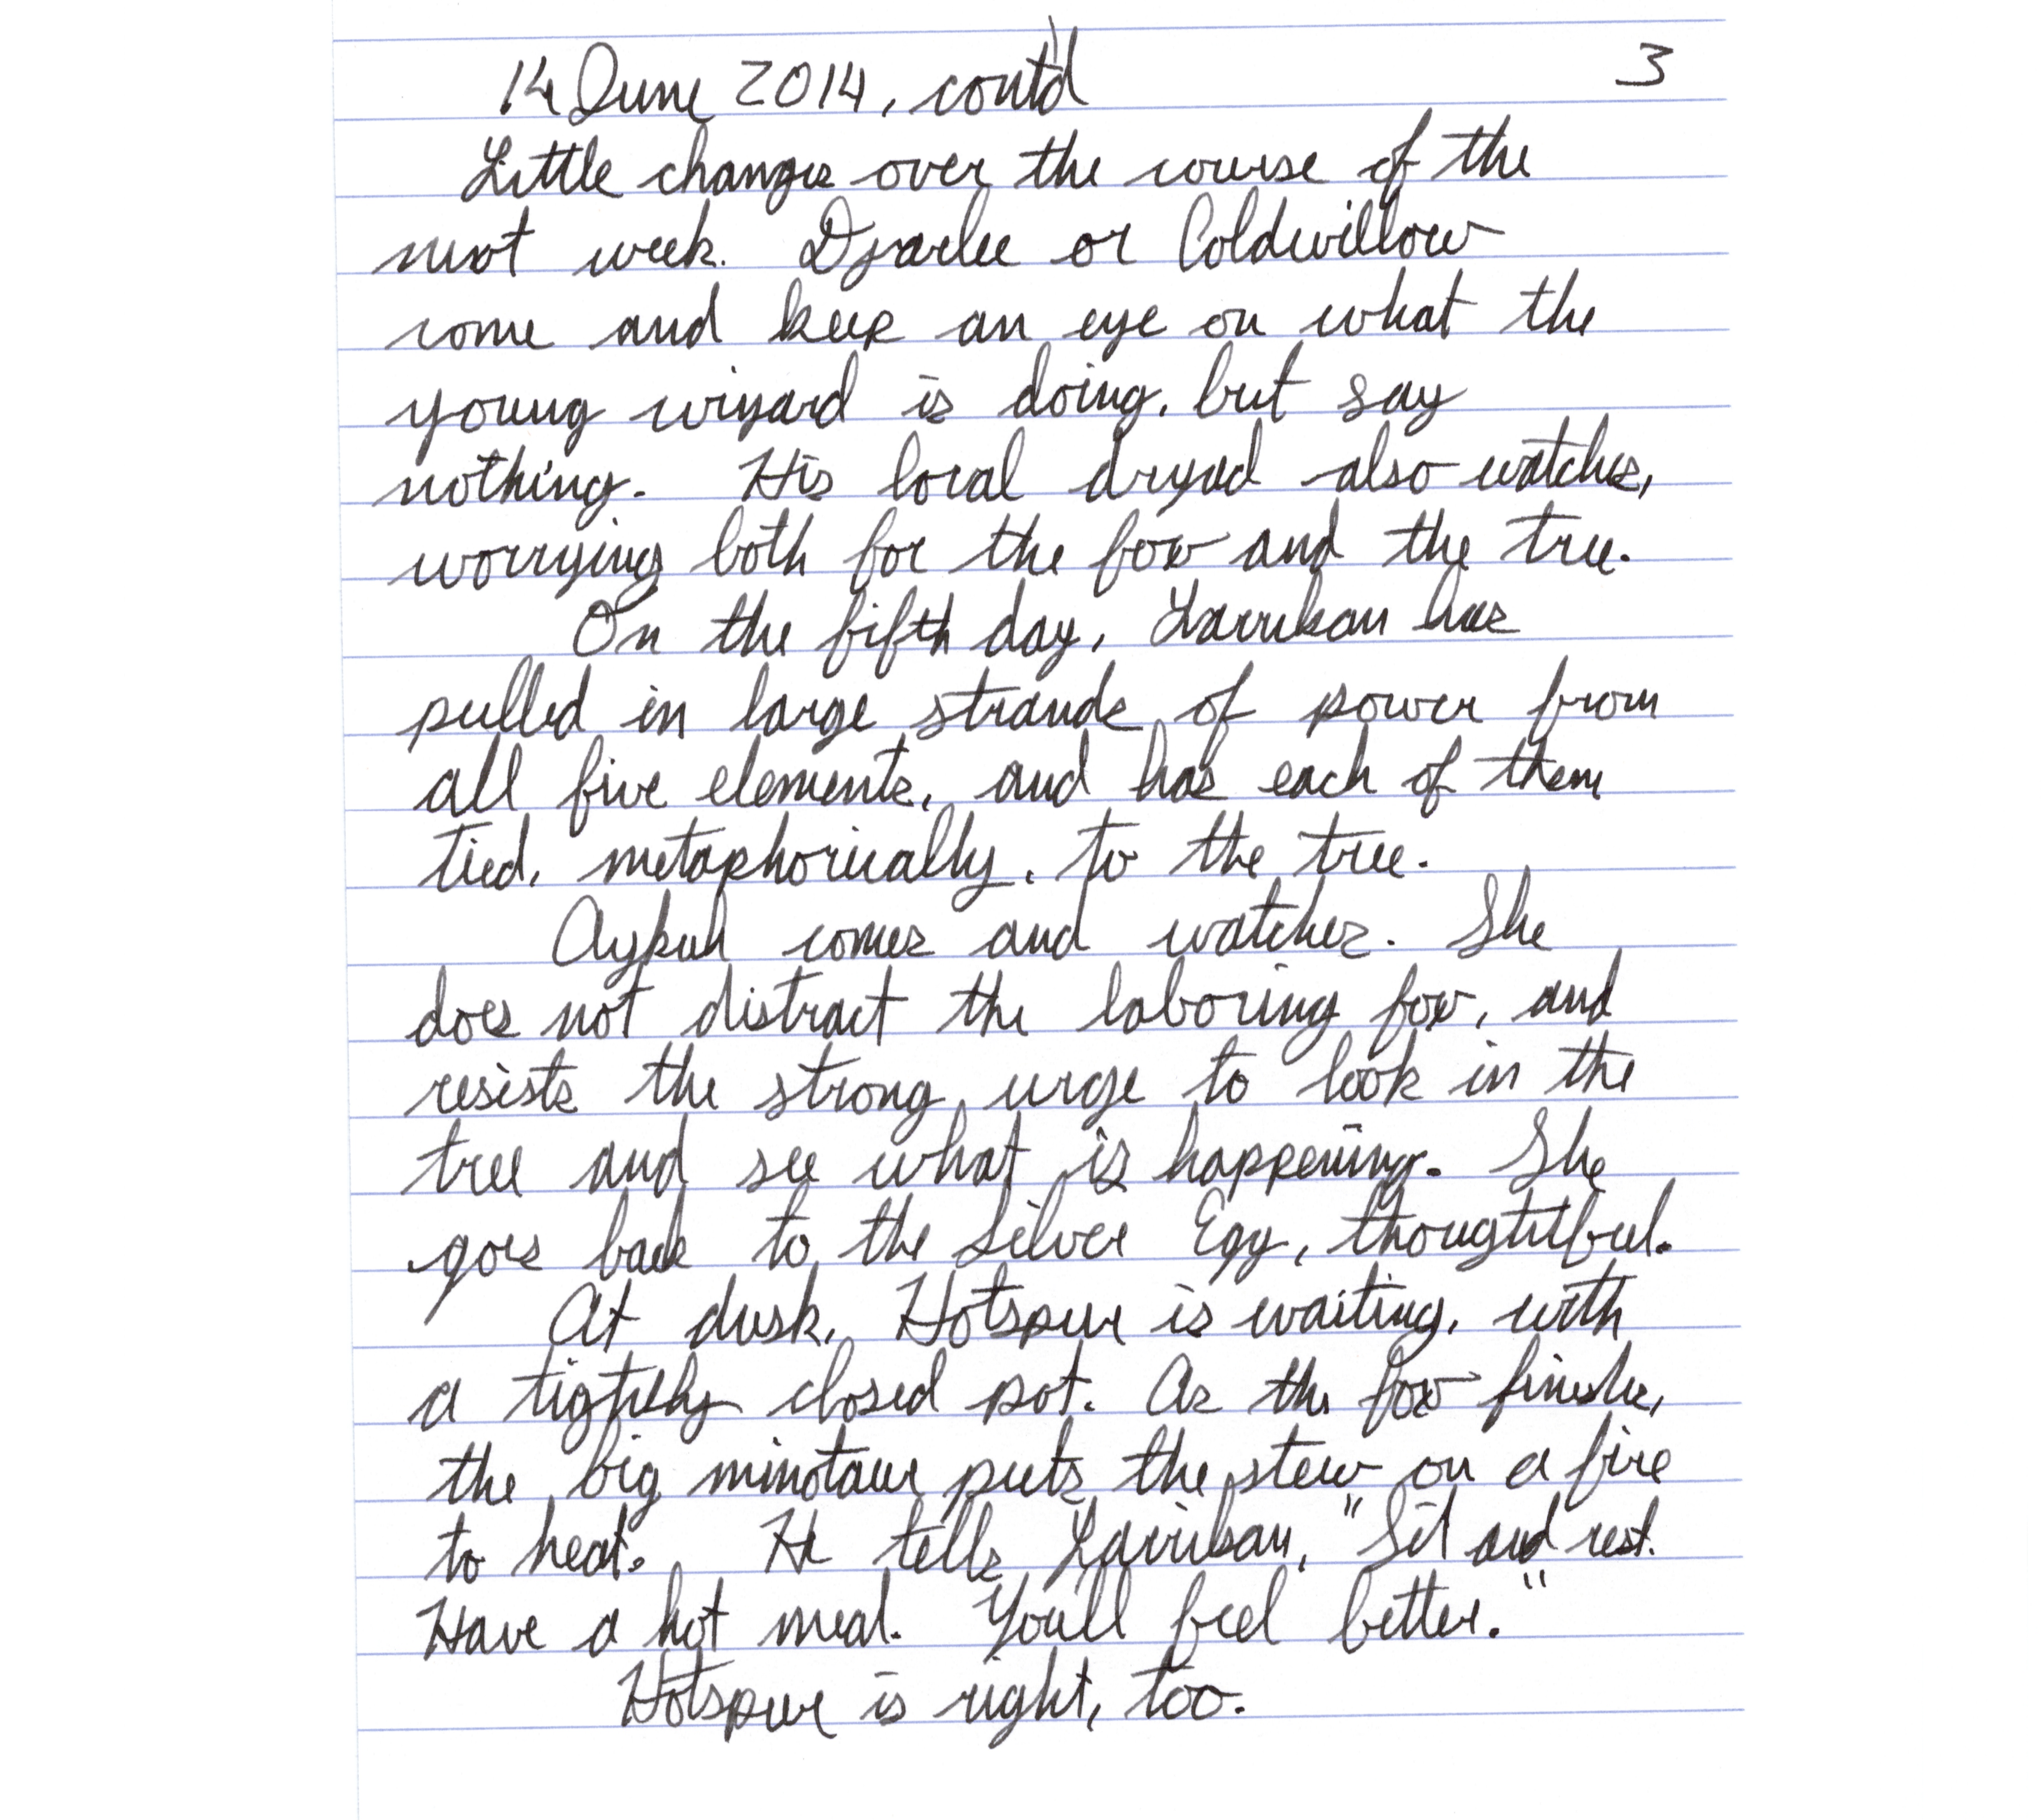 14 June 2014, cont'd 3
Little changes over the course of the
next week. Djarlee or Coldwillow
come and keep an eye on what the
young wizard is doing, but say
nothing. His local dryad also watches,
worrying both for the fox and the tree.
On the fifth day, Larrikan has
pulled in large strands of power from
all five elements, and has each of them
tied, metaphorically, to the tree.
comes and watches. She
does not distract the laboring fox, and
resists the strong urge to look in the
tree and see what is happening. She
goes back to the Silver Egg, thoughtful.
At dusk, Hotspur is waiting, with
a tightly closed pot. As the fox finishes,
the big minotaur puts the stew on a fire
to heat. He tells Larrikan, "Sit and rest.
Have a hot meal. You'll feel better."
Hotspur is right, too.